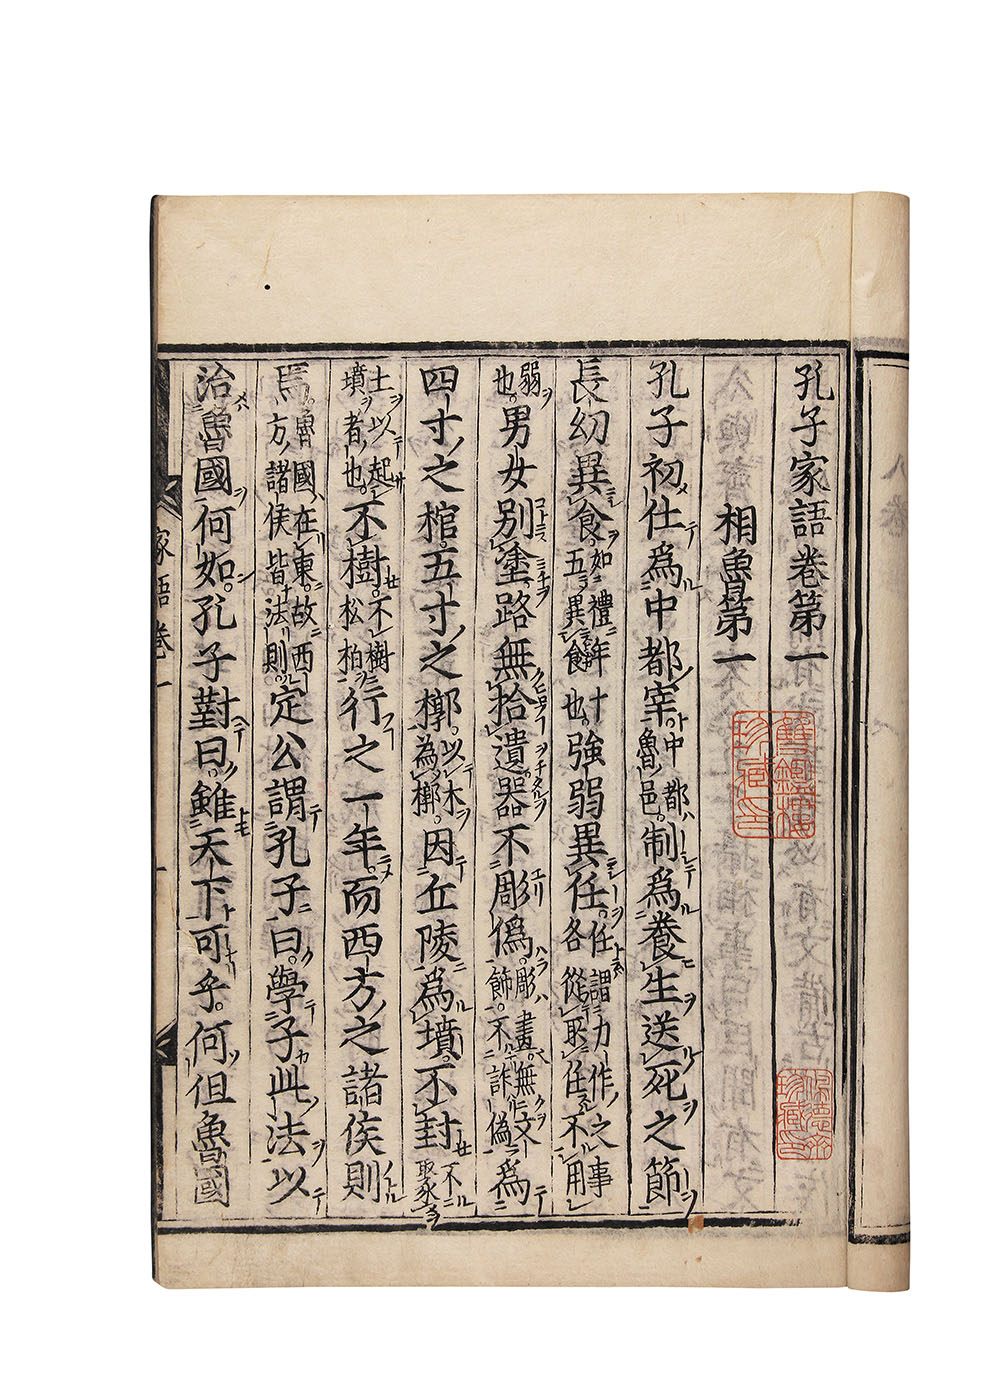 孔子家語卷第一
相魯第一
孔子初仕爲中都宰。中都魯邑。制爲養生送死之節
長幼異食。如禮年十五異食也。強弱異任。任謂力作之事各從取任不用
弱也。男女別塗。路無拾遺。器不彫僞。彫畫。無文飾。不詐偽。爲
四寸之棺。五寸之槨。以木為槨。因丘陵爲墳。不封。不聚
土以起墳者也。不樹。不樹松柏。行之一年。而西方之諸侯則
焉。魯國在東。故西方諸侯皆法則。定公謂孔子曰。學子此法以
治魯國何如。孔子對曰。雖天下可乎。何但魯國
家語卷一
一
雙鑑樓珍藏印